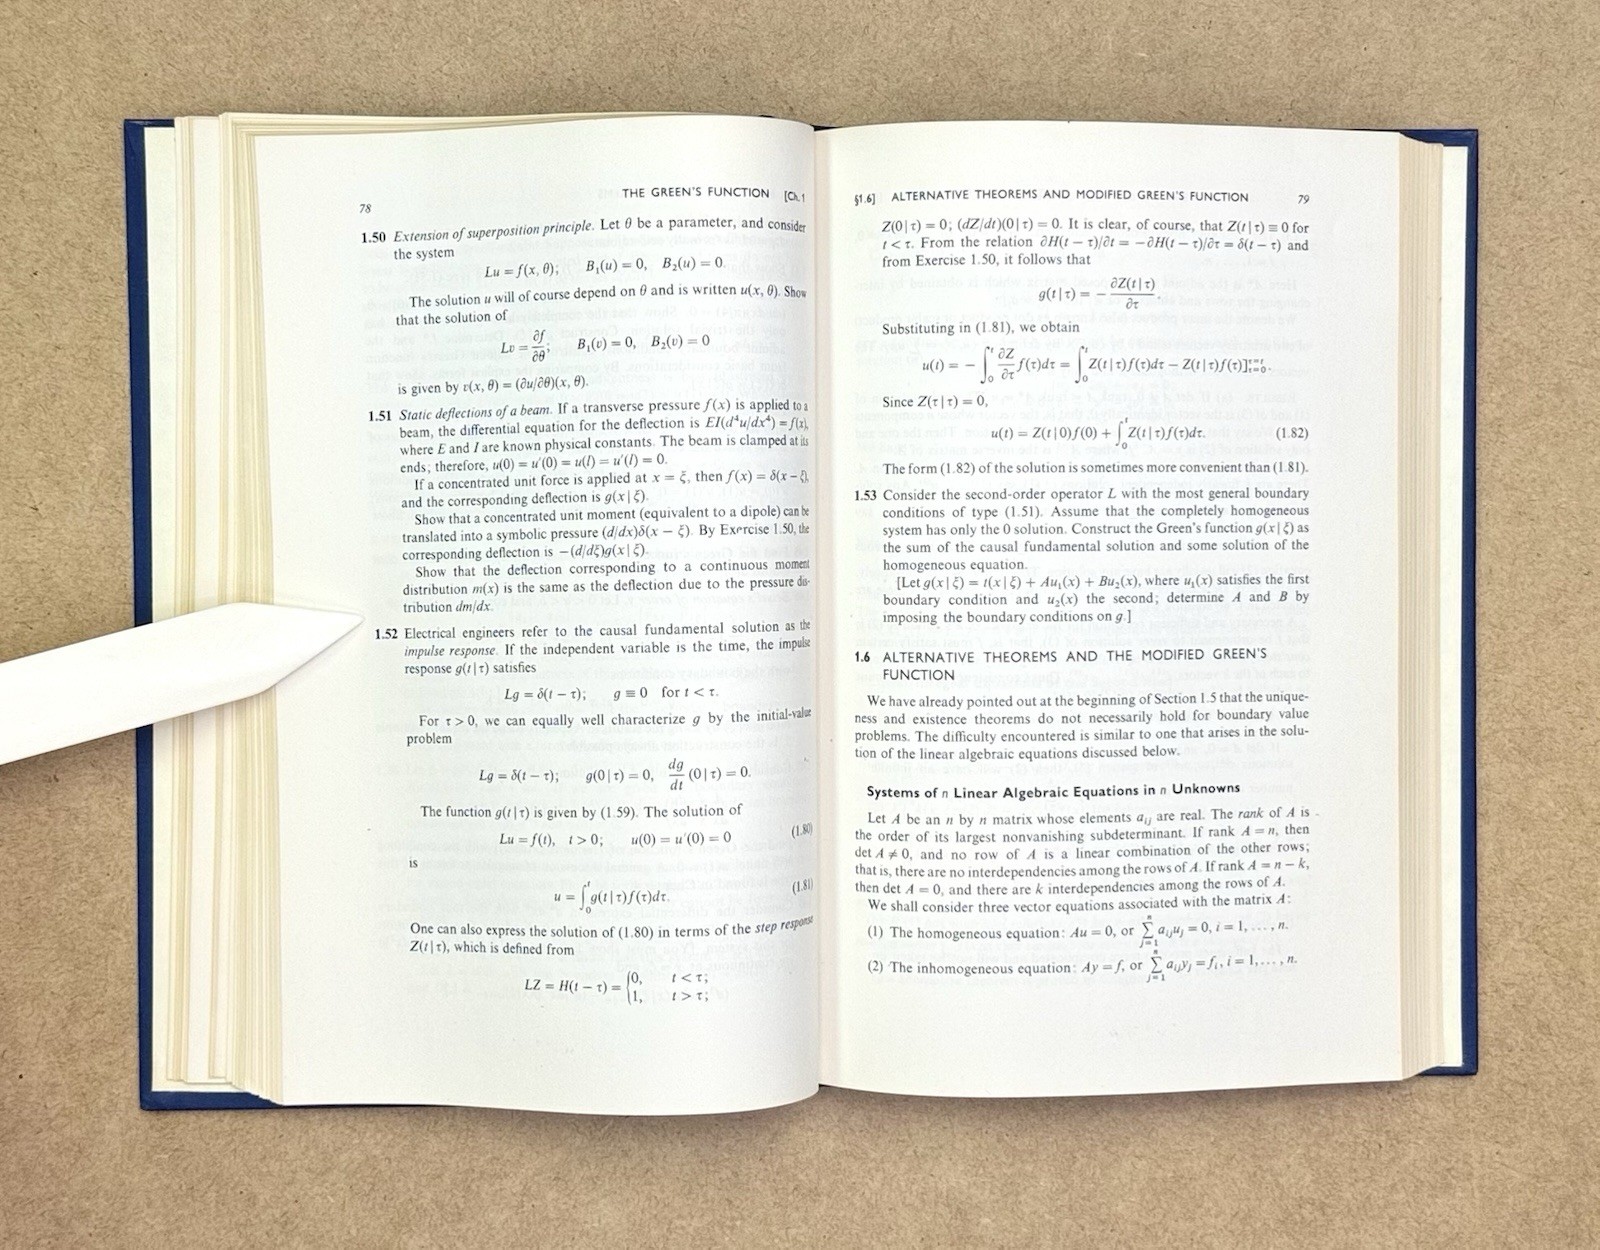 THE GREEN'S FUNCTION [Ch. 1
78
1.50 Extension of superposition principle. Let θ be a parameter, and consider
the system
Lu = f(x, θ); B₁(u) = 0, B₂(u) = 0.
The solution u will of course depend on θ and is written u(x, θ). Show
that the solution of
Lv = ∂f/∂θ; B₁(v) = 0, B₂(v) = 0
is given by v(x, θ) = (∂u/∂θ)(x, θ).
1.51 Static deflections of a beam. If a transverse pressure f(x) is applied to a
beam, the differential equation for the deflection is EI(d⁴u/dx⁴) = f(x),
where E and I are known physical constants. The beam is clamped at its
ends; therefore, u(0) = u′(0) = u(l) = u′(l) = 0.
If a concentrated unit force is applied at x = ξ, then f(x) = δ(x − ξ),
and the corresponding deflection is g(x | ξ).
Show that a concentrated unit moment (equivalent to a dipole) can be
translated into a symbolic pressure (d/dx)δ(x − ξ). By Exercise 1.50, the
corresponding deflection is −(d/dξ)g(x | ξ).
Show that the deflection corresponding to a continuous moment
distribution m(x) is the same as the deflection due to the pressure dis-
tribution dm/dx.
1.52 Electrical engineers refer to the causal fundamental solution as the
impulse response. If the independent variable is the time, the impulse
response g(t | τ) satisfies
Lg = δ(t − τ); g ≡ 0 for t < τ.
For τ > 0, we can equally well characterize g by the initial-value
problem
Lg = δ(t − τ); g(0 | τ) = 0, dg/dt (0 | τ) = 0.
The function g(t | τ) is given by (1.59). The solution of
Lu = f(t), t > 0; u(0) = u′(0) = 0 (1.80)
is
u = ∫₀ᵗ g(t | τ)f(τ)dτ. (1.81)
One can also express the solution of (1.80) in terms of the step response
Z(t | τ), which is defined from
LZ = H(t − τ) = {0, t < τ;
1, t > τ;
§1.6] ALTERNATIVE THEOREMS AND MODIFIED GREEN'S FUNCTION 79
Z(0 | τ) = 0; (dZ/dt)(0 | τ) = 0. It is clear, of course, that Z(t | τ) ≡ 0 for
t < τ. From the relation ∂H(t − τ)/∂t = −∂H(t − τ)/∂τ = δ(t − τ) and
from Exercise 1.50, it follows that
g(t | τ) = − ∂Z(t | τ)/∂τ.
Substituting in (1.81), we obtain
u(t) = − ∫₀ᵗ ∂Z/∂τ f(τ)dτ = ∫₀ᵗ Z(t | τ)f′(τ)dτ − Z(t | τ)f(τ)]τ=0τ=t.
Since Z(τ | τ) = 0,
u(t) = Z(t | 0)f(0) + ∫₀ᵗ Z(t | τ)f′(τ)dτ. (1.82)
The form (1.82) of the solution is sometimes more convenient than (1.81).
1.53 Consider the second-order operator L with the most general boundary
conditions of type (1.51). Assume that the completely homogeneous
system has only the 0 solution. Construct the Green's function g(x | ξ) as
the sum of the causal fundamental solution and some solution of the
homogeneous equation.
[Let g(x | ξ) = t(x | ξ) + Au₁(x) + Bu₂(x), where u₁(x) satisfies the first
boundary condition and u₂(x) the second; determine A and B by
imposing the boundary conditions on g.]
1.6 ALTERNATIVE THEOREMS AND THE MODIFIED GREEN'S
FUNCTION
We have already pointed out at the beginning of Section 1.5 that the unique-
ness and existence theorems do not necessarily hold for boundary value
problems. The difficulty encountered is similar to one that arises in the solu-
tion of the linear algebraic equations discussed below.
Systems of n Linear Algebraic Equations in n Unknowns
Let A be an n by n matrix whose elements aᵢⱼ are real. The rank of A is
the order of its largest nonvanishing subdeterminant. If rank A = n, then
det A ≠ 0, and no row of A is a linear combination of the other rows;
that is, there are no interdependencies among the rows of A. If rank A = n − k,
then det A = 0, and there are k interdependencies among the rows of A.
We shall consider three vector equations associated with the matrix A:
(1) The homogeneous equation: Au = 0, or ∑ⁿⱼ₌₁ aᵢⱼuⱼ = 0, i = 1, . . . , n.
(2) The inhomogeneous equation: Ay = f, or ∑ⁿⱼ₌₁ aᵢⱼyⱼ = fᵢ, i = 1, . . . , n.